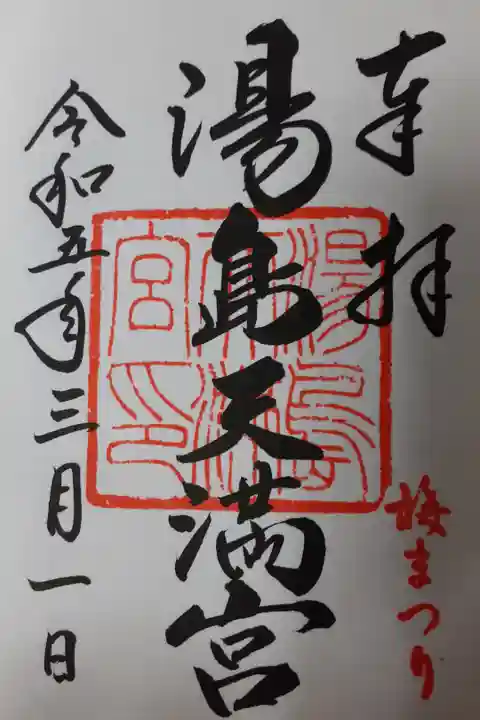 奉拝
湯島天満宮
湯島天満宮印
梅まつり
令和五年三月一日